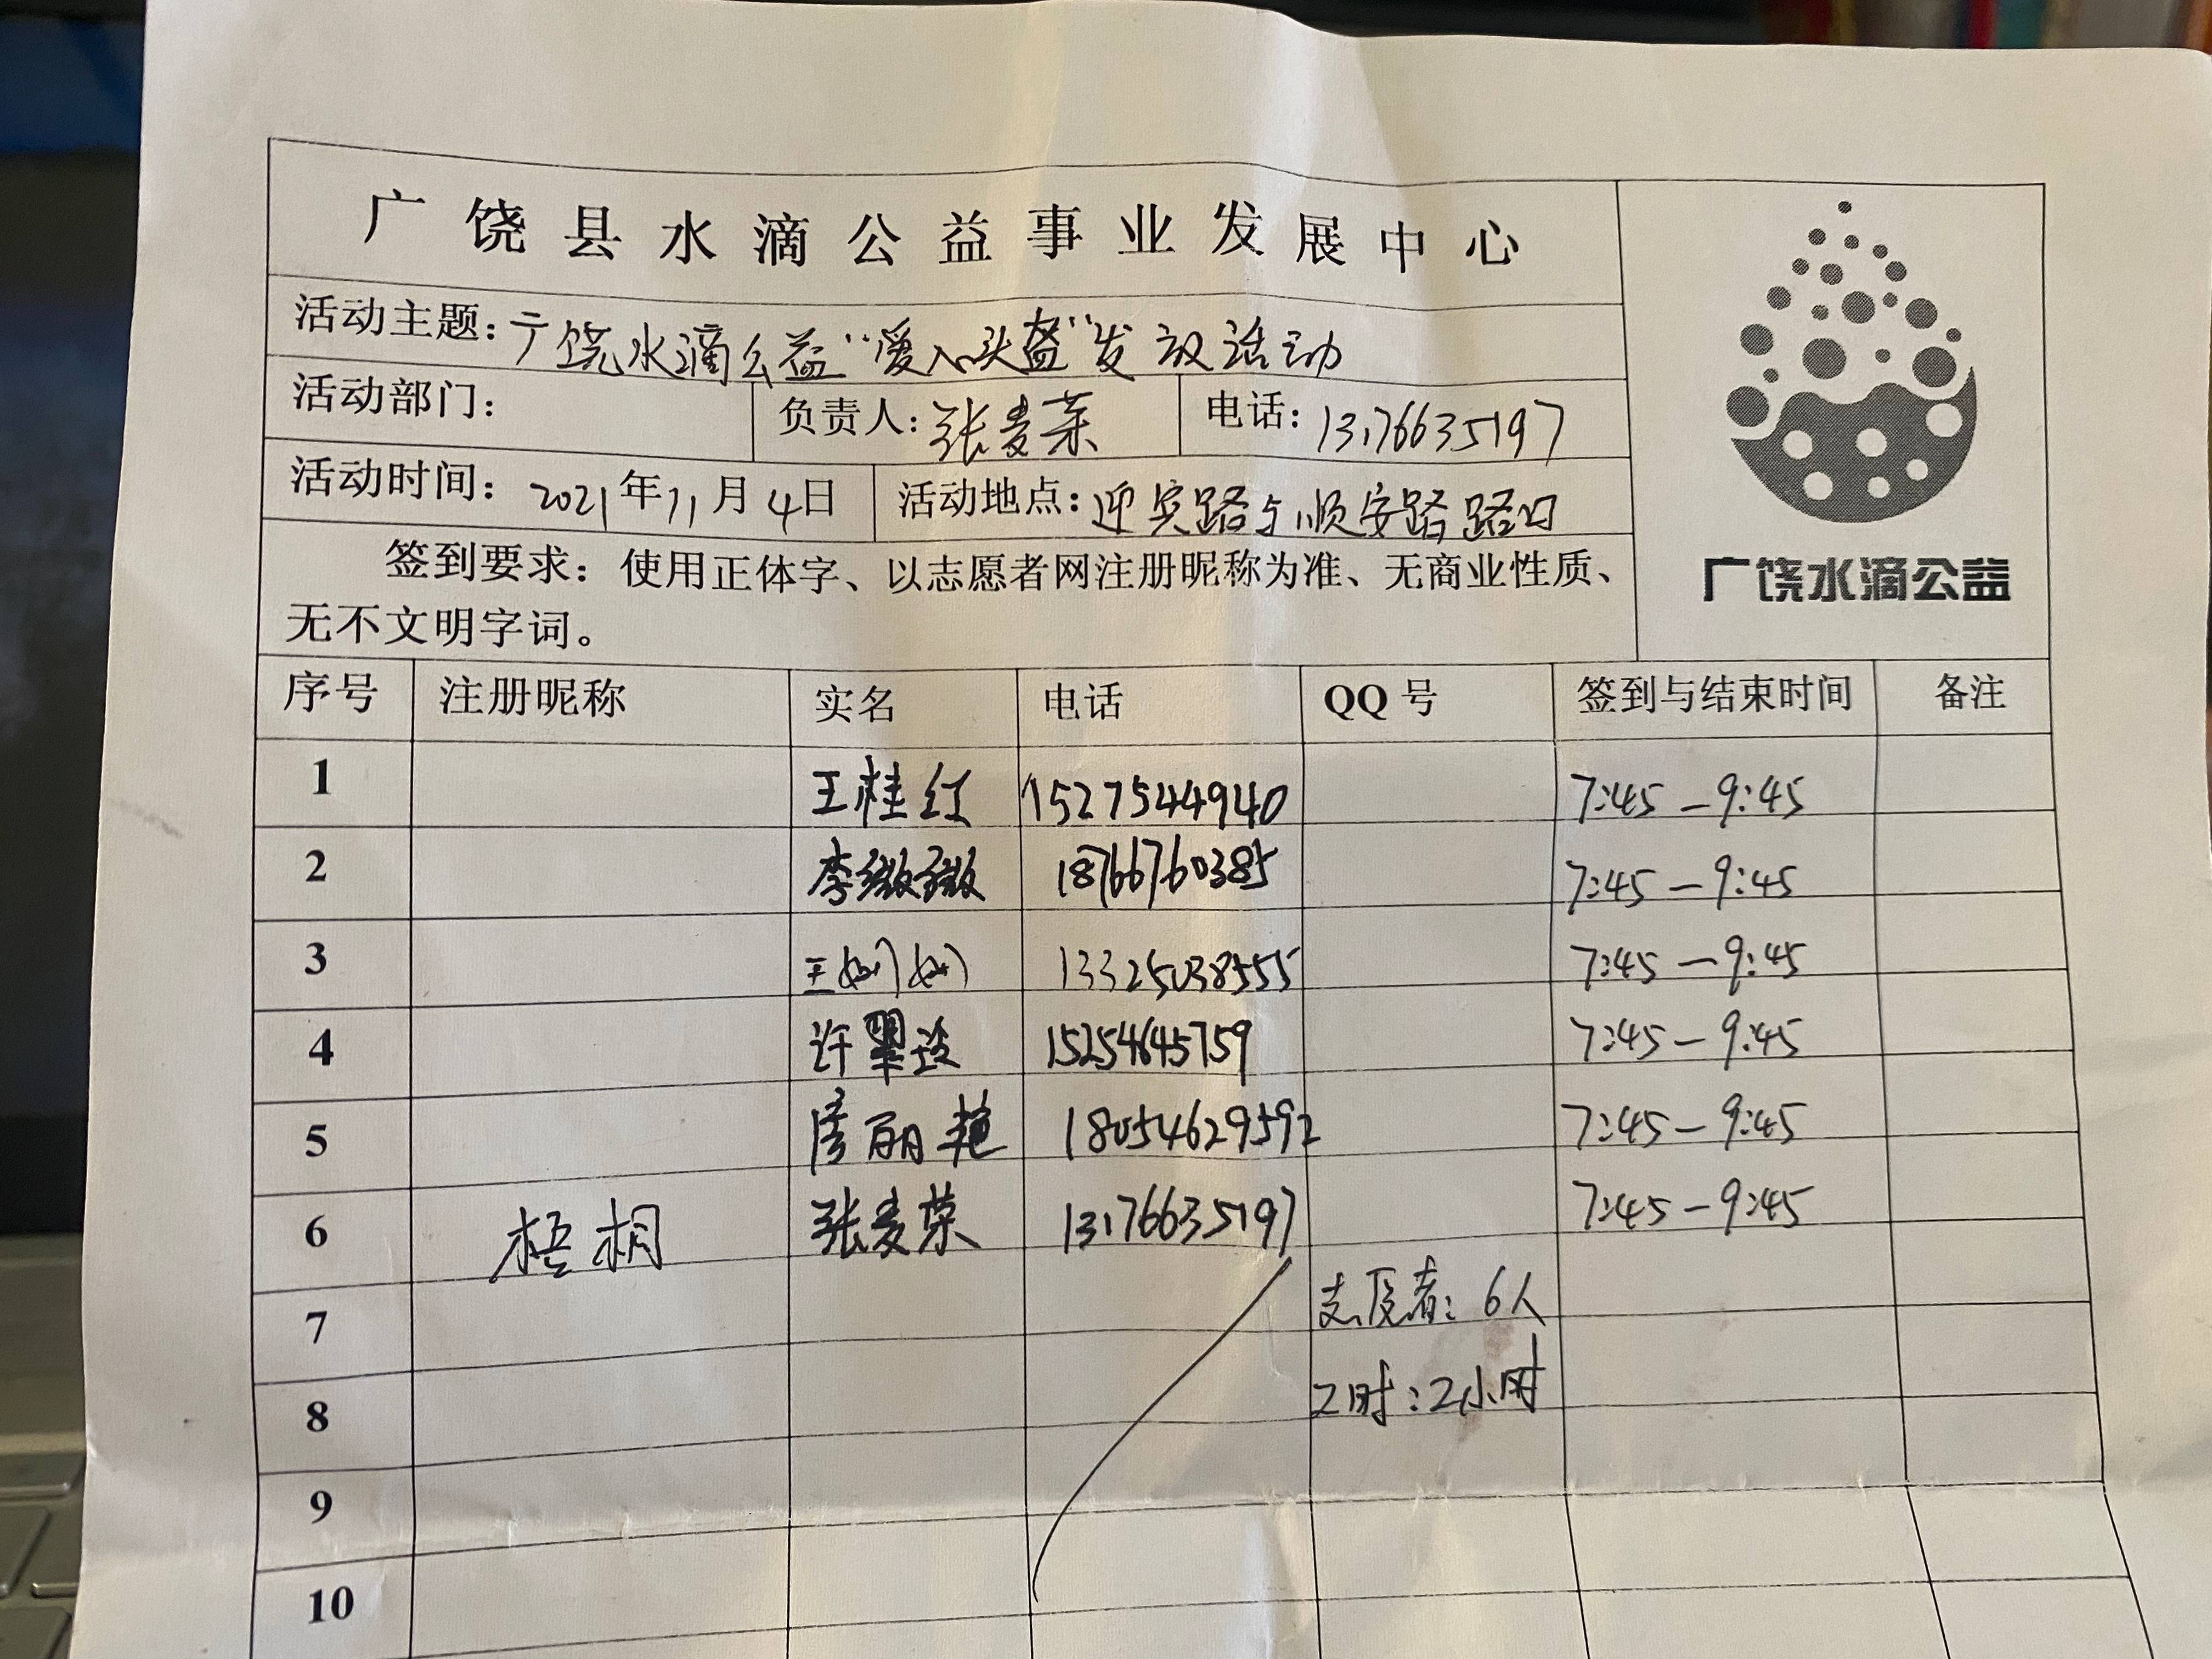 广饶县水滴公益事业发展中心
活动主题：广饶水滴公益“爱入头盔”发放活动
活动部门： 负责人：张麦荣 电话：13176635197
活动时间：2021年11月4日 活动地点：迎宾路与顺安路路口
签到要求：使用正体字、以志愿者网注册昵称为准、无商业性质、
无不文明字词。
广饶水滴公益
序号 注册昵称 实名 电话 QQ号 签到与结束时间 备注
1 王桂红 15275449940 7:45—9:45
2 李微微 18766760385 7:45—9:45
3 王 13325038555 7:45—9:45
4 许翠 15254645759 7:45—9:45
5 丽艳 18054629592 7:45—9:45
6 梧桐 张麦荣 13176635197 7:45—9:45
7 志愿者：6人
8 工时：2小时
9
10